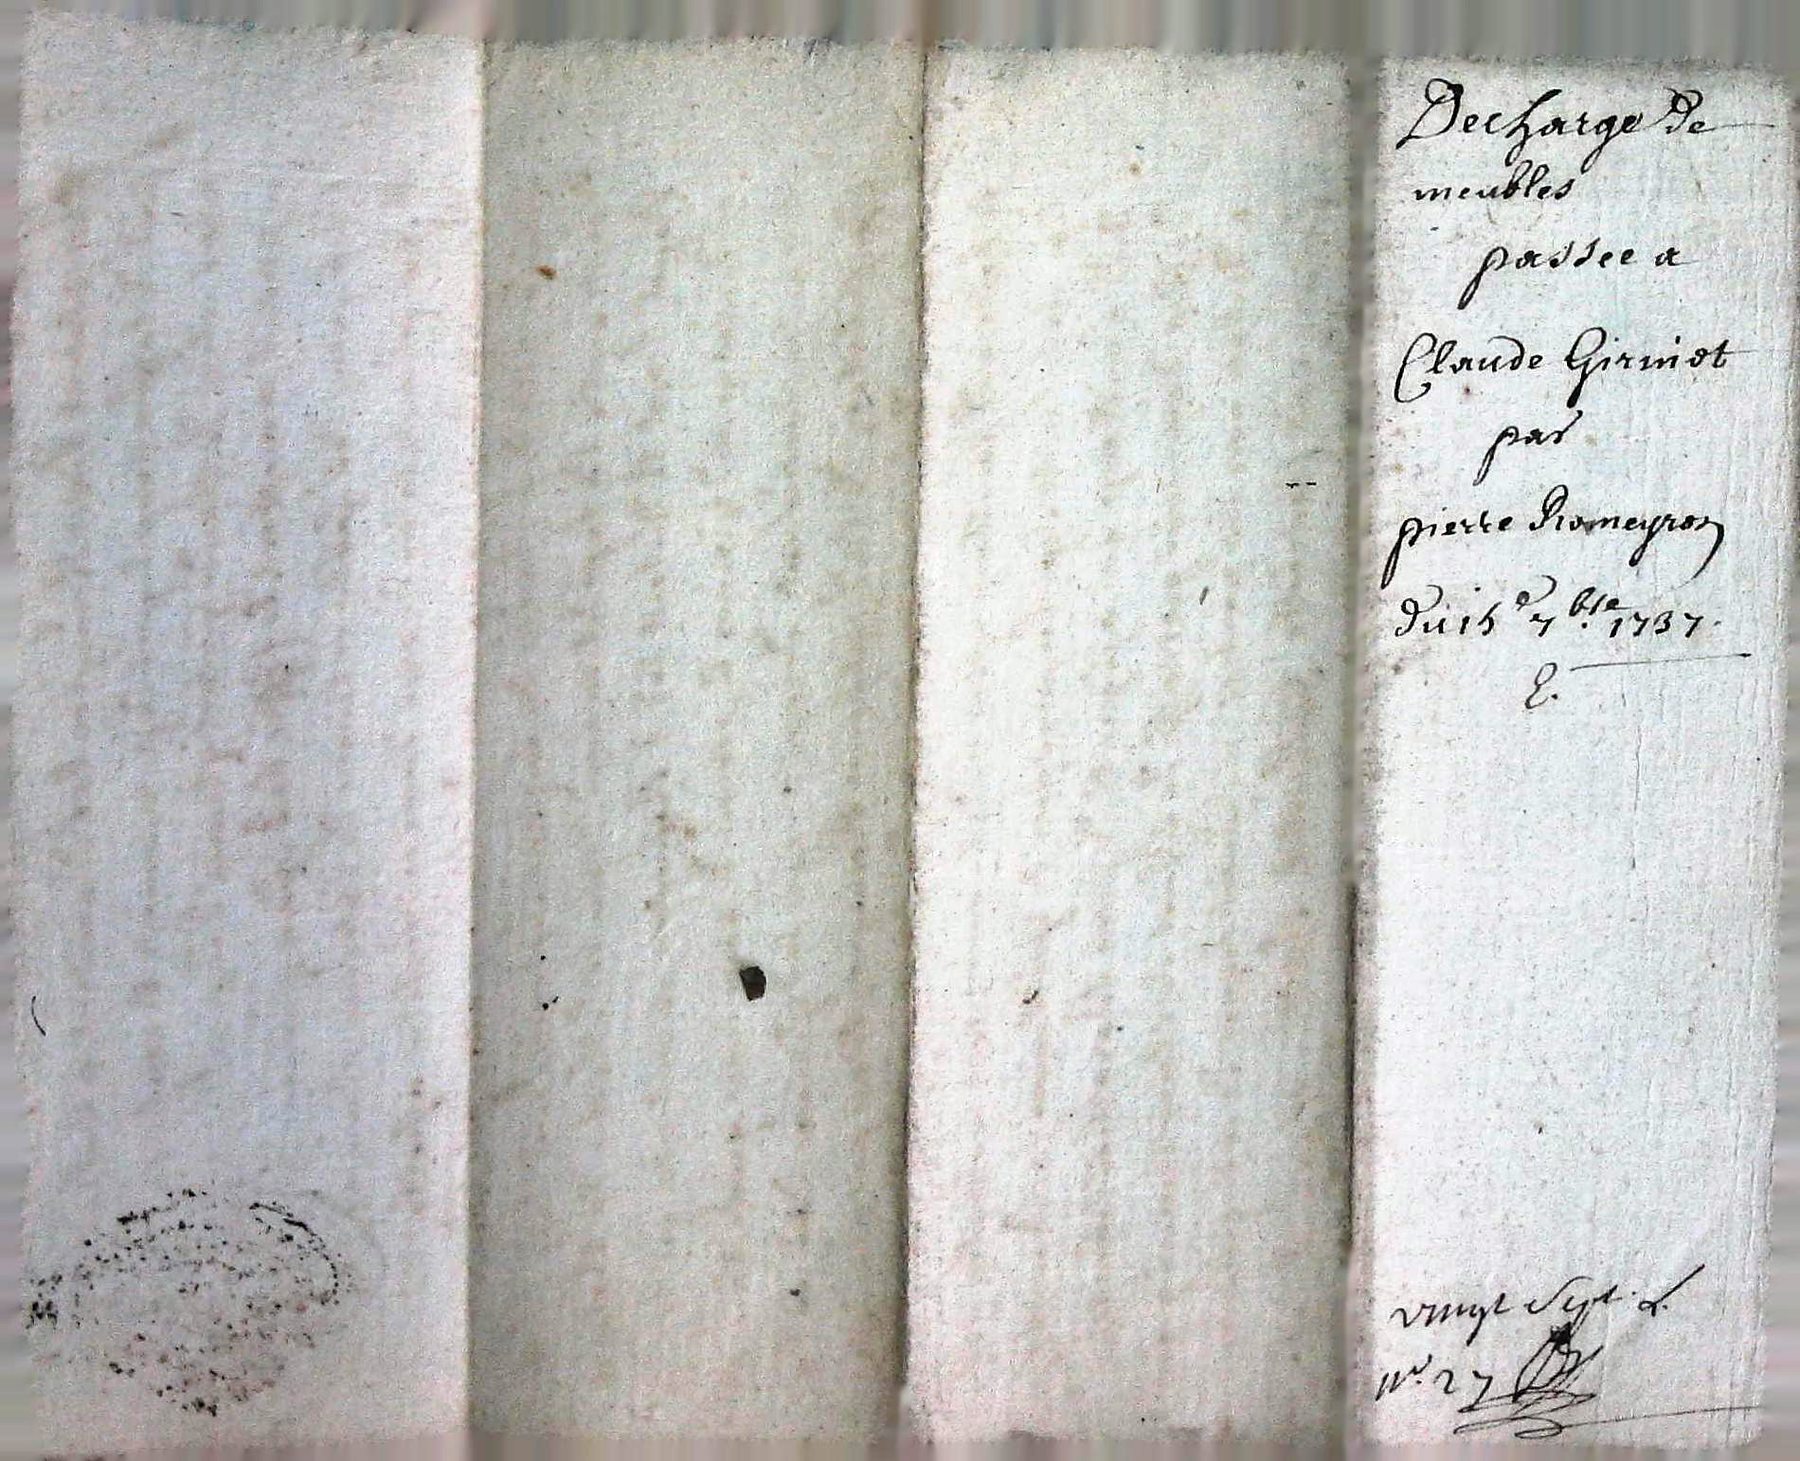 Decharge de
meubles
passée a
Claude Giriniot
par
pierre Romeyron
du 15e 7bre 1737.
E.
vingt sept.
n°. 27